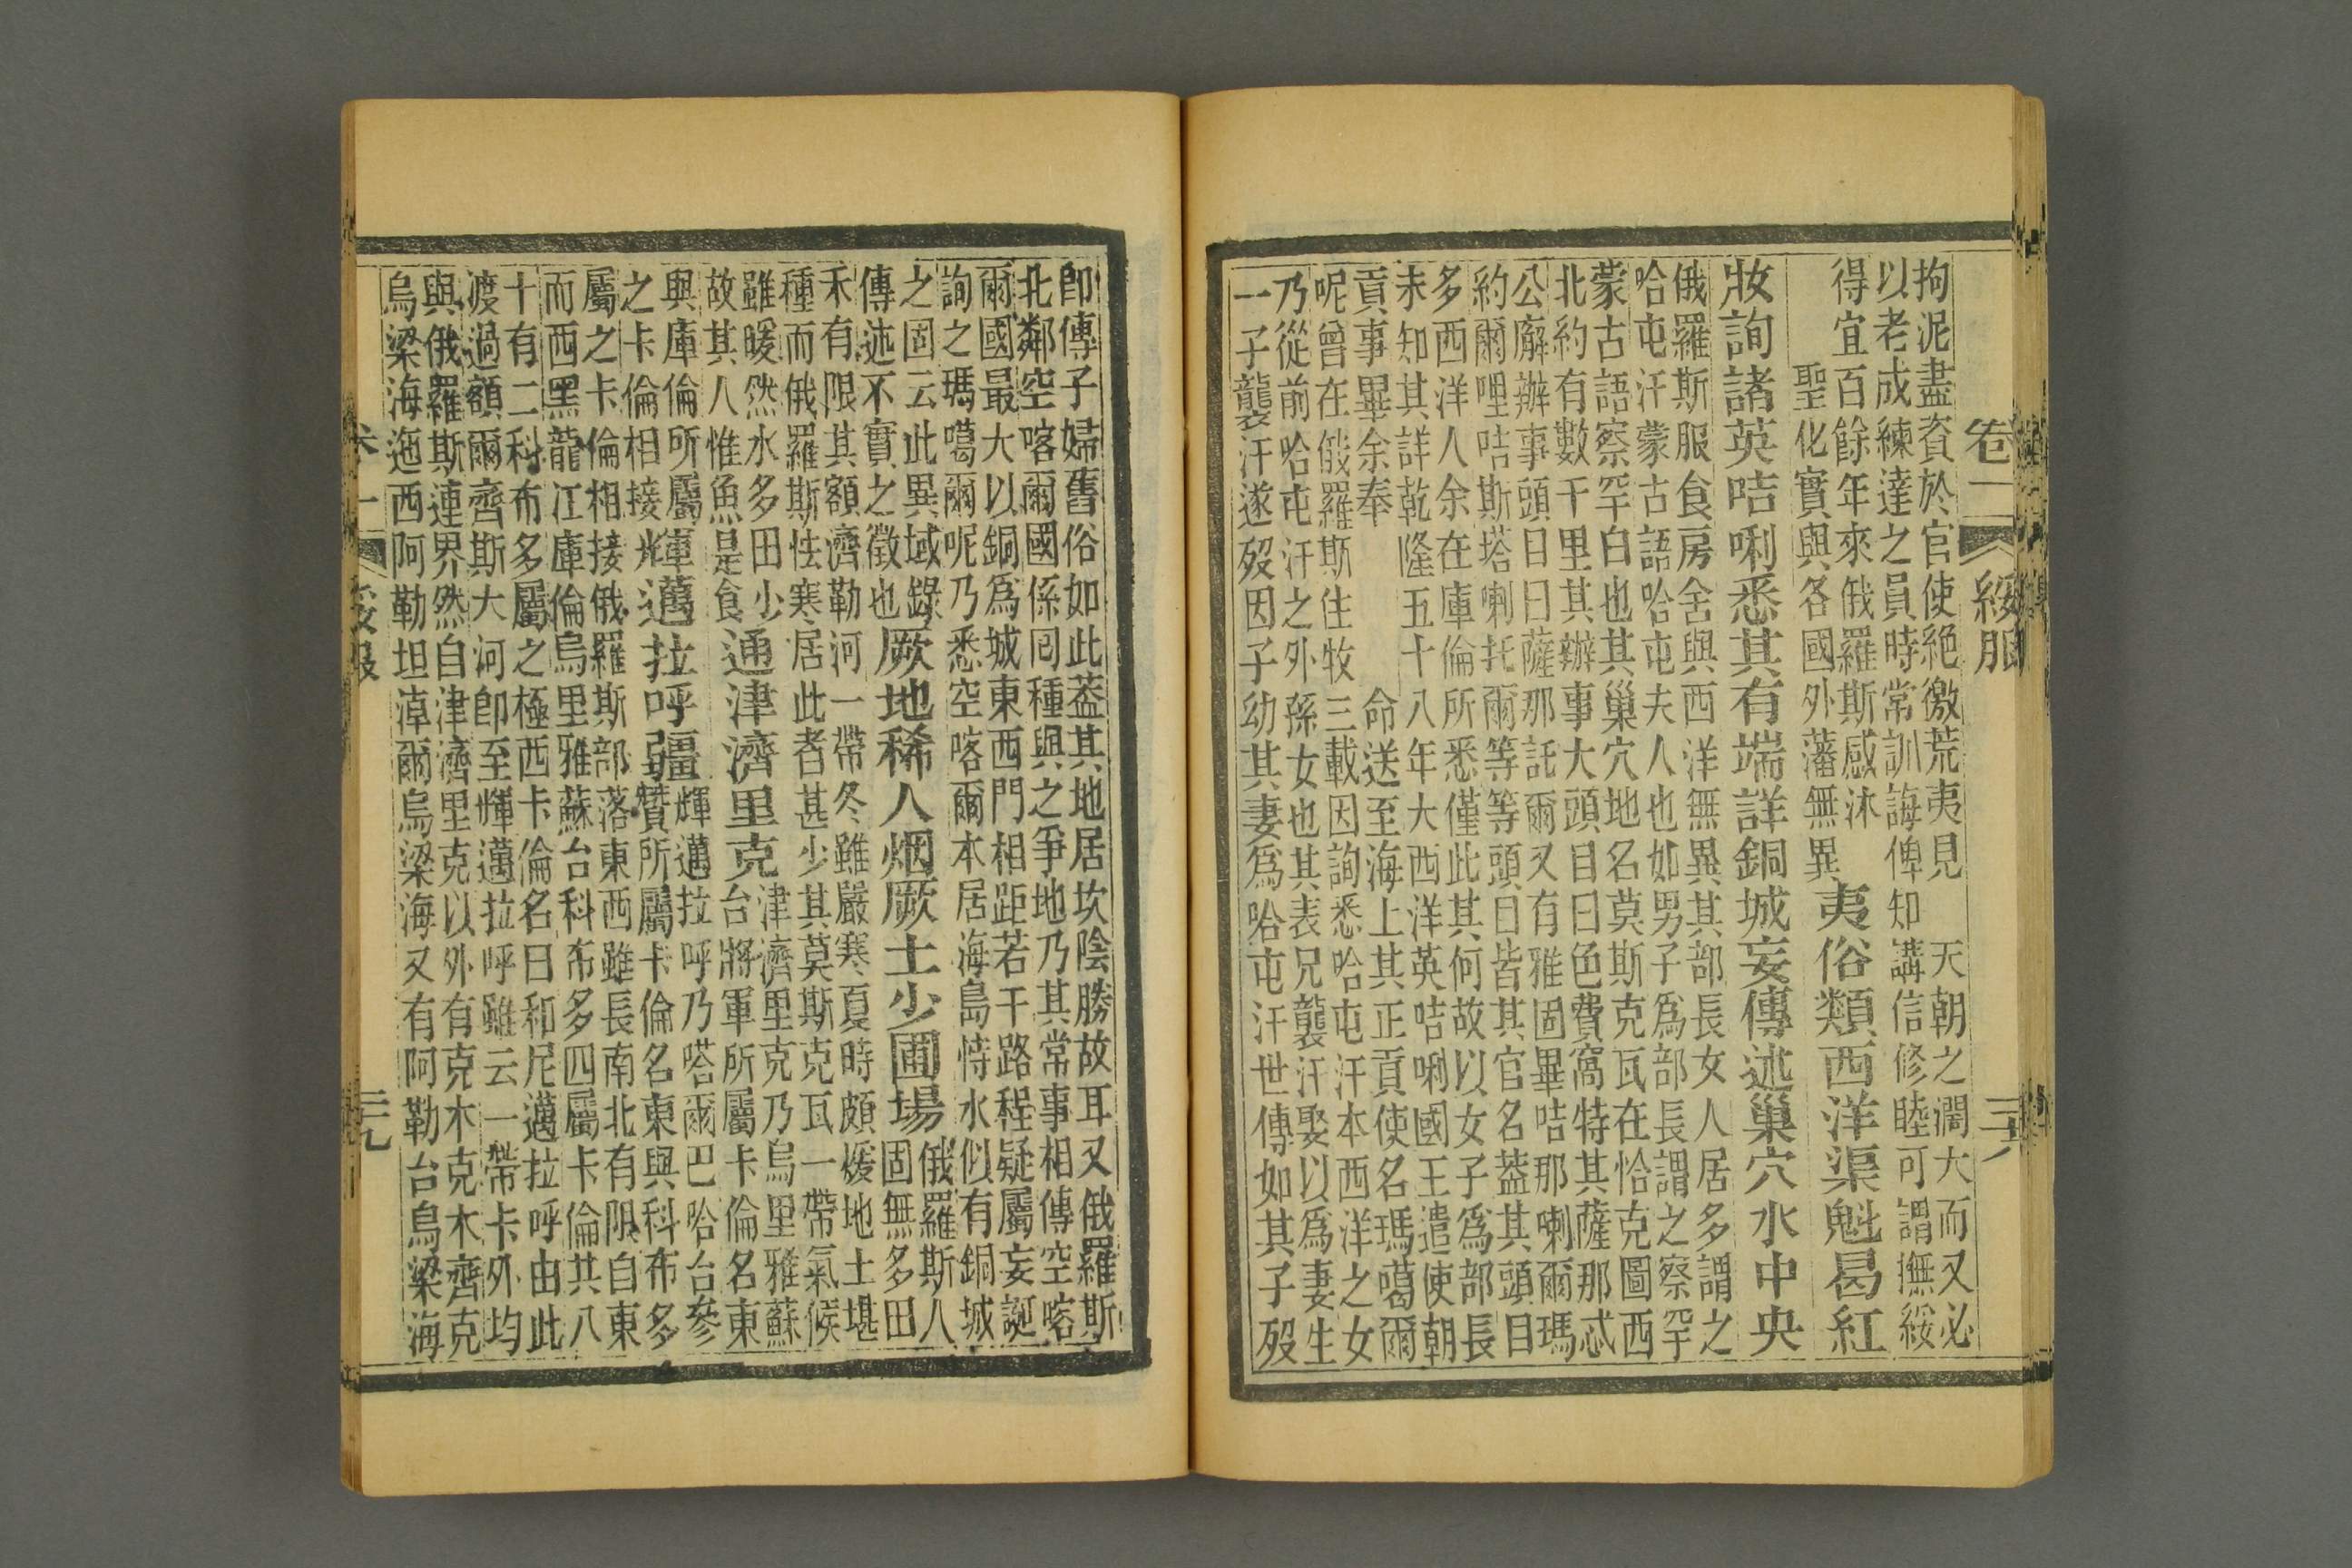 卷二 綏服 二十八
拘泥盡資於官使絕徼荒夷見 天朝之濶大而又必
以老成練達之員時常訓誨俾知講信修睦可謂撫綏
得宜百餘年來俄羅斯感沐
聖化實與各國外藩無異
夷俗類西洋渠魁曷紅
妝詢諸英咭唎悉其有端詳銅城妄傳述巢穴水中央
俄羅斯服食房舍與西洋無異其部長女人居多謂之
哈屯汗蒙古語哈屯夫人也如男子爲部長謂之察罕
蒙古語察罕白也其巢穴地名莫斯克瓦在恰克圖西
北約有數千里其辦事大頭目曰色費窩特其薩那忒
公廨辦事頭目曰薩那託爾又有雅固畢咭那喇爾瑪
約爾哩咭斯塔喇托爾等等頭目皆其官名葢其頭目
多西洋人余在庫倫所悉僅此其何故以女子爲部長
未知其詳乾隆五十八年大西洋英咭唎國王遣使朝
貢事畢余奉 命送至海上其正貢使名瑪噶爾
呢曾在俄羅斯住牧三載因詢悉哈屯汗本西洋之女
乃從前哈屯汗之外孫女也其表兄襲汗娶以爲妻生
一子襲汗遂歿因子幼其妻爲哈屯汗世傳如其子歿
卽傳子婦舊俗如此葢其地居坎陰勝故耳又俄羅斯
北鄰空喀爾國係同種與之爭地乃其常事相傳空喀
爾國最大以銅爲城東西門相距若干路程疑屬妄誕
詢之瑪噶爾呢乃悉空喀爾本居海島恃水似有銅城
之固云此異域錄
傳述不實之徵也
厥地稀人烟厥土少圃場
俄羅斯人
固無多田
禾有限其額濟勒河一帶冬雖嚴寒夏時頗煖地土堪
種而俄羅斯怯寒居此者甚少其莫斯克瓦一帶氣候
雖暖然水多田少
故其人惟魚是食
通津濟里克
津濟里克乃烏里雅蘇
台將軍所屬卡倫名東
與庫倫所屬
之卡倫相接
輝邁拉呼疆
輝邁拉呼乃塔爾巴哈台參
贊所屬卡倫名東與科布多
屬之卡倫相接俄羅斯部落東西雖長南北有限自東
而西黑龍江庫倫烏里雅蘇台科布多四屬卡倫其八
十有二科布多屬之極西卡倫名曰和尼邁拉呼由此
渡過額爾齊斯大河卽至輝邁拉呼雖云一帶卡外均
與俄羅斯連界然自津濟里克以外有克木克木齊克
烏梁海迤西阿勒坦淖爾烏梁海又有阿勒台烏梁海